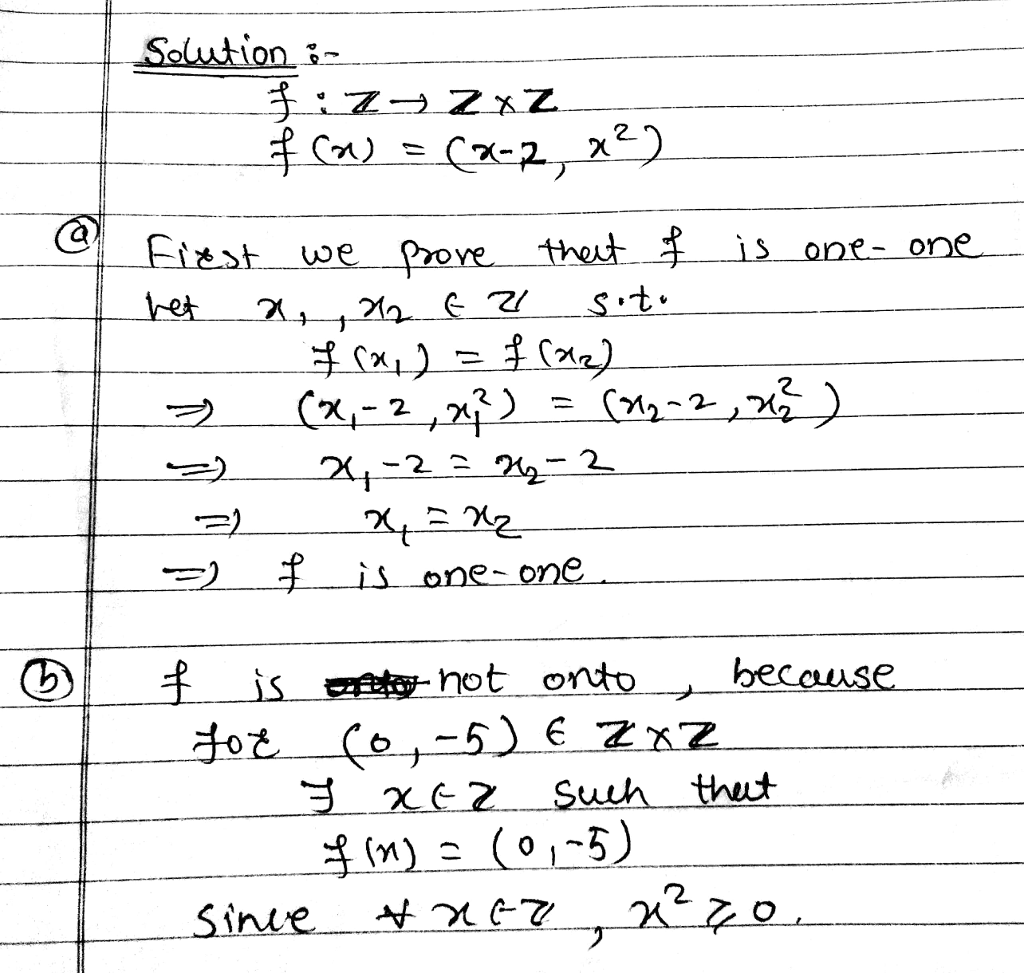 Solution :-
f : Z → Z × Z
f(x) = (x-2, x²)
(a) First we prove that f is one-one
Let x₁, x₂ ∈ Z s.t.
f(x₁) = f(x₂)
⇒ (x₁-2, x₁²) = (x₂-2, x₂²)
⇒ x₁-2 = x₂-2
⇒ x₁ = x₂
⇒ f is one-one.
(b) f is not onto, because
for (0,-5) ∈ Z × Z
∃ x ∈ Z such that
f(x) = (0,-5)
since ∀ x ∈ Z, x² ≥ 0.